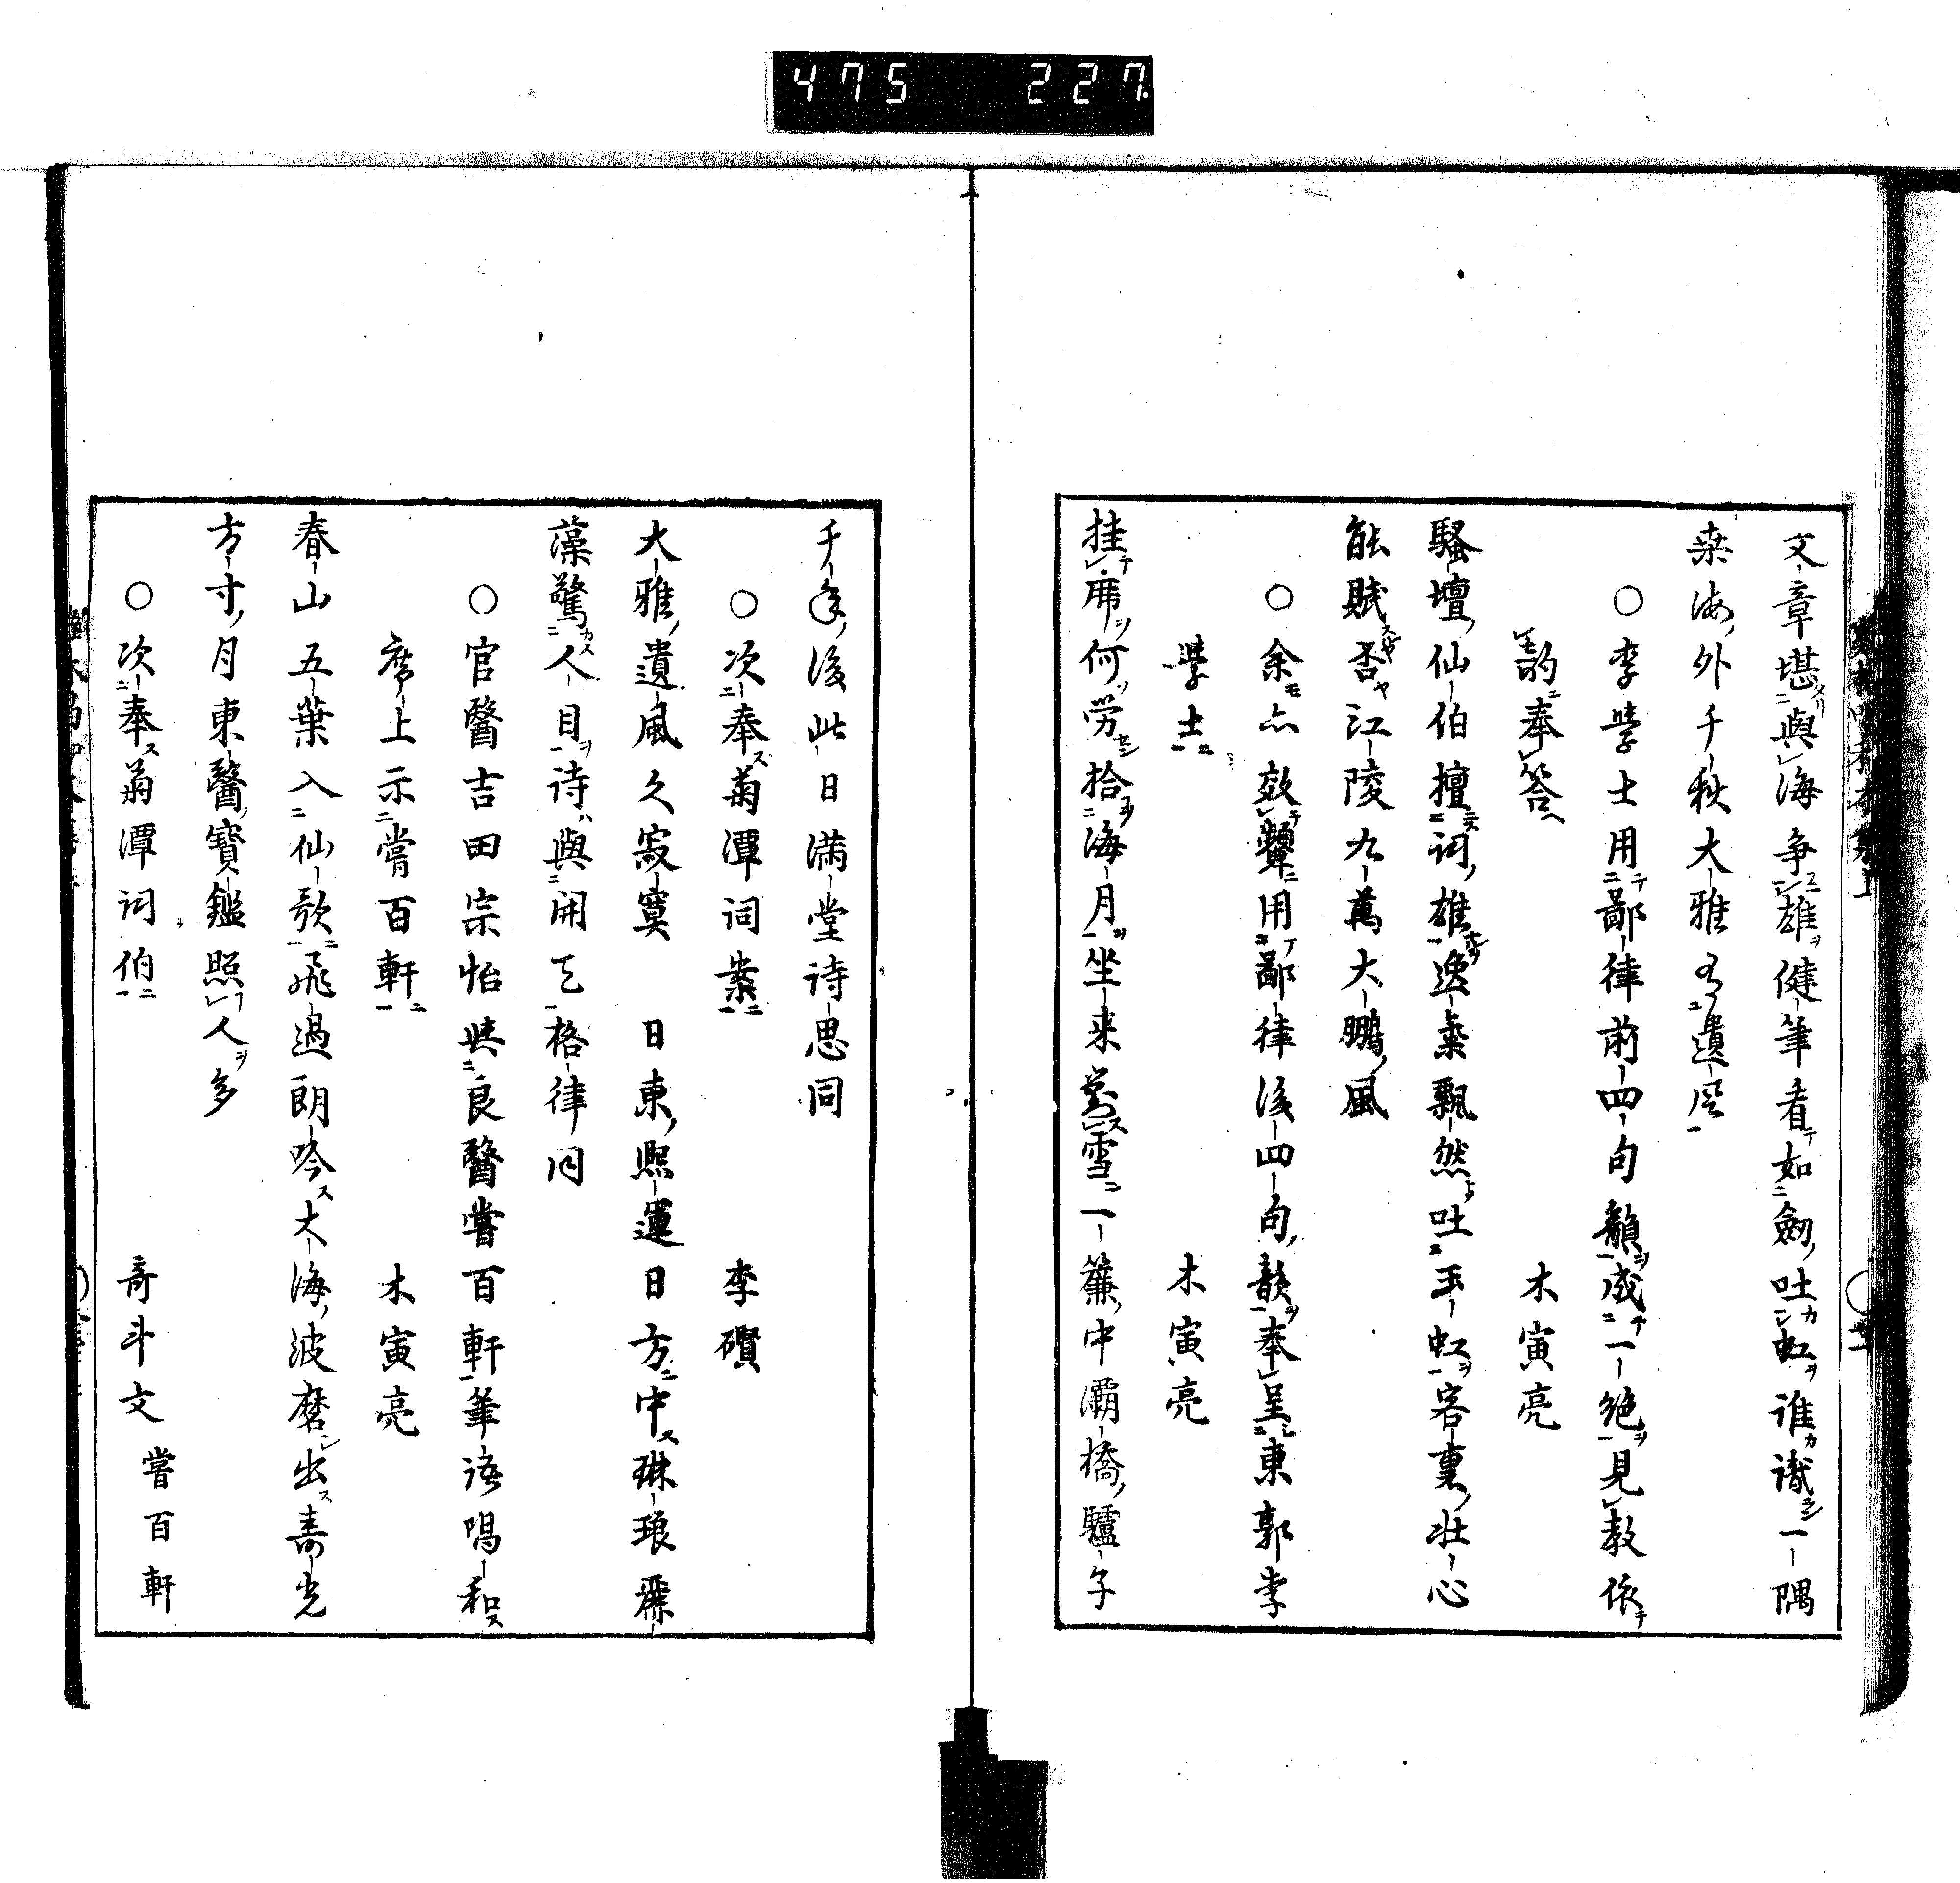 475 227
文章堪與海争雄健筆看如劔吐虹誰識一隅
桒海外千秋大雅有遺风
○李學士用鄙律前四句韻成一絶見教依
韵奉答 木寅亮
騷壇仙伯擅詞雄逸氣飄然吐玉虹客裏壮心
能賦否江陵九萬大鵬風
○余亦效顰用鄙律後四句韻奉呈東郭李
學士 木寅亮
挂席何労拾海月坐来對雪一簾中灞橋驢子
千年後此日満堂詩思同
○次奉菊潭詞案 李礥
大雅遺風久寂寞 日東熙運日方中琳琅
藻驚人目詩與開天格律同
○官醫吉田宗怡與良醫嘗百軒筆语唱和
席上示嘗百軒 木寅亮
春山五葉入仙歌飛過朗吟大海波磨出壽光
方寸月東醫寶鑑照人多
○次奉菊潭詞伯 竒斗文 嘗百軒